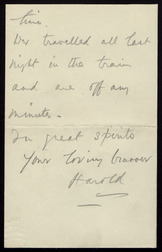 time.
We travelled all last
night in the train
and are off any
minute -
In great spirits
Your loving
Harold